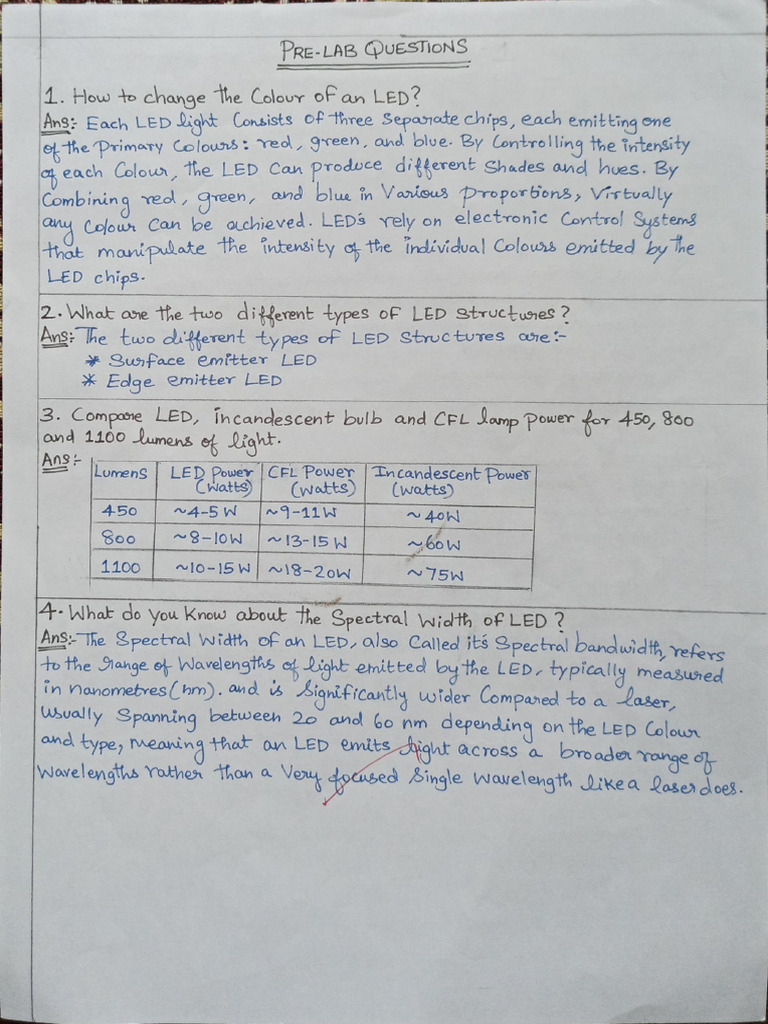 PRE-LAB QUESTIONS
1. How to change the Colour of an LED?
Ans:- Each LED light Consists of three Separate chips, each emitting one
of the Primary Colours: red, green, and blue. By Controlling the intensity
of each Colour, the LED Can produce different Shades and hues. By
Combining red, green, and blue in Various Proportions, Virtually
any Colour Can be achieved. LED's rely on electronic Control Systems
that manipulate the intensity of the individual Colours emitted by the
LED chips.
2. What are the two different types of LED Structures?
Ans:- The two different types of LED Structures are:-
* Surface emitter LED
* Edge emitter LED
3. Compare LED, incandescent bulb and CFL lamp Power for 450, 800
and 1100 lumens of light.
Ans:-
Lumens LED Power (Watts) CFL Power (Watts) Incandescent Power (Watts)
450 ~4-5 W ~9-11W ~40W
800 ~8-10W ~13-15 W ~60W
1100 ~10-15W ~18-20W ~75W
4. What do you Know about the Spectral Width of LED?
Ans:- The Spectral Width of an LED, also Called it's Spectral bandwidth, refers
to the range of Wavelengths of light emitted by the LED, typically measured
in nanometres (nm). and is Significantly wider Compared to a laser,
Usually Spanning between 20 and 60 nm depending on the LED Colour
and type, meaning that an LED emits light across a broader range of
Wavelengths rather than a Very focused Single Wavelength like a laser does.